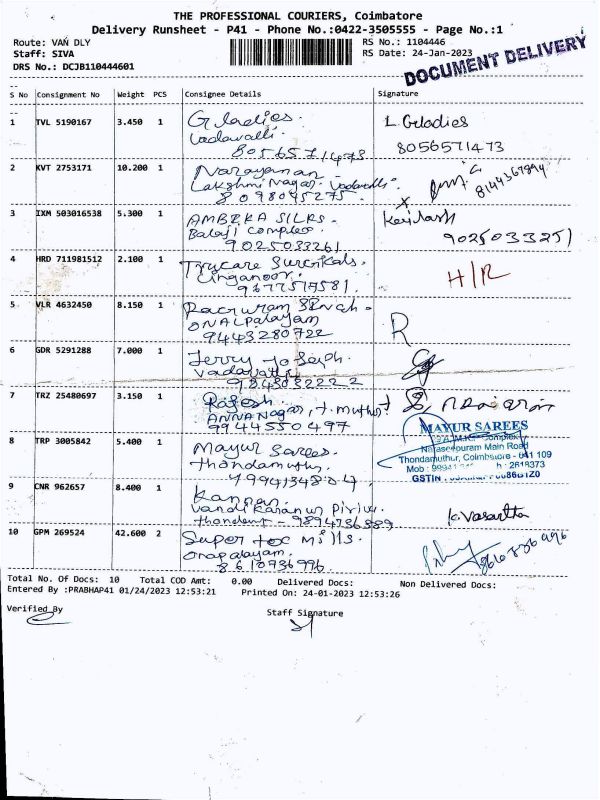 THE PROFESSIONAL COURIERS, Coimbatore
Delivery Runsheet - P41 - Phone No.:0422-3505555 - Page No.:1
Route: VAN DLY RS No.: 1104446
Staff: SIVA RS Date: 24-Jan-2023
DRS No.: DCJB110444601
DOCUMENT DELIVERY
S No Consignment No Weight PCS Consignee Details Signature
1 TVL 5190167 3.450 1 Gladies. L. Gladies
Vadavalli.
8056571473 8056571473
2 KVT 2753171 10.200 1 Narayanan
Lakshmi Nagar. Vadavalli. 8144367894
8098045275
3 IXM 503016538 5.300 1 AMBIKA SILKS - Kailash
Balaji Complex.
9025033261 9025033251
4 HRD 711981512 2.100 1 Trycare Surgikals. H/R
Linganoor.
9677517581.
5 VLR 4632450 8.150 1 R
ONALPalayam
9443280722
6 GDR 5291288 7.000 1 Jerry Joseph.
Vadavalli
7 TRZ 25480697 3.150 1 Rajesh.
ANNA Nagar, T. Muthur
9944550497
8 TRP 3005842 5.400 1 Mayur Sarees.
Thondamuthur
MAYUR SAREES
Complex
Naraseepuram Main Road
Thondamuthur, Coimbatore - 641 109
Mob : 99941 h : 2618373
GSTIN
9 CNR 962657 8.400 1 Kannan. K. Vasantha
Vandikaranur Pirivu.
- 9894736389
10 GPM 269524 42.600 2 Super tex Mills.
Onapalayam.
8610736996. 8610736996
Total No. Of Docs: 10 Total COD Amt: 0.00 Delivered Docs: Non Delivered Docs:
Entered By :PRABHAP41 01/24/2023 12:53:21 Printed On: 24-01-2023 12:53:26
Verified By Staff Signature